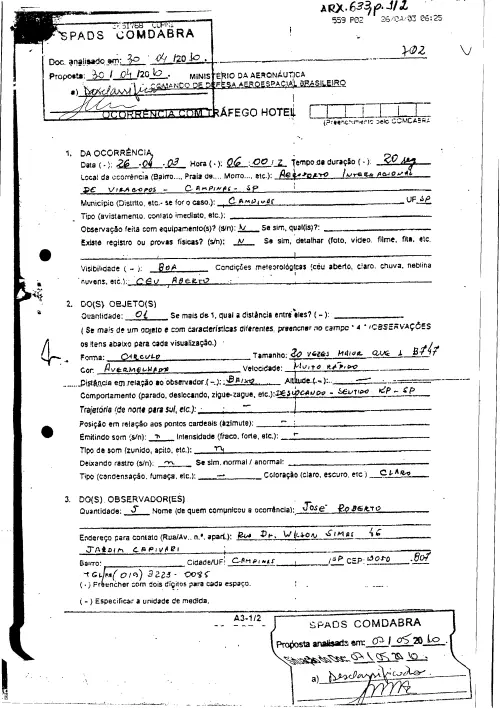 ARX.633,p.1/2
559 P02 26/04/03 06:25
SPADS COMDABRA
702
Doc. analisado em: 30 04/2010
Proposta: 30/04/2010.
a) Desclassificado
MINISTÉRIO DA AERONÁUTICA
COMANDO DE DEFESA AEROESPACIAL BRASILEIRO
OCORRÊNCIA COM TRÁFEGO HOTEL
(Preenchimento pelo COMDABRA
1. DA OCORRÊNCIA
Data (·): 26 04 03 Hora (·): 06:00:2 Tempo de duração (-): 20 seg
Local da ocorrência (Bairro..., Praia de..., Morro..., etc.): AEROPORTO INTERNACIONAL
DE VIRACOPOS - CAMPINAS - SP
Município (Distrito, etc.- se for o caso.): CAMPINAS UF SP
Tipo (avistamento, contato imediato, etc.):
Observação feita com equipamento(s)? (s/n): N Se sim, qual(is)?:
Existe registro ou provas físicas? (s/n): N Se sim, detalhar (foto, vídeo, filme, fita, etc.
Visibilidade (-): BOA Condições meteorológicas (céu aberto, claro, chuva, neblina
nuvens, etc.): CEU ABERTO
2. DO(S) OBJETO(S)
Quantidade: 01 Se mais de 1, qual a distância entre eles? (-):
( Se mais de um objeto e com características diferentes, preencher no campo " 4 " (OBSERVAÇÕES
os itens abaixo para cada visualização.)
Forma: CIRCULO Tamanho: 20 VEZES MAIOR QUE 1 B747
Cor: AVERMELHADO Velocidade: MUITO RÁPIDO
Distância em relação ao observador (-): BAIXO Altitude (-): -
Comportamento (parado, deslocando, zigue-zague, etc.): DESLOCANDO - SENTIDO KP - SP
Trajetória (de norte para sul, etc.): -
Posição em relação aos pontos cardeais (azimute): -
Emitindo som (s/n): n Intensidade (fraco, forte, etc.): -
Tipo de som (zunido, apito, etc.): N
Deixando rastro (s/n): n Se sim, normal / anormal:
Tipo (condensação, fumaça, etc.): - Coloração (claro, escuro, etc.) CLARO
3. DO(S) OBSERVADOR(ES)
Quantidade: 5 Nome (de quem comunicou a ocorrência): JOSÉ ROBERTO
Endereço para contato (Rua/Av., n.°, apart.): RUA DR. WILSON SIMAS 46
JARDIM CAPIVARI
Bairro: Cidade/UF: CAMPINAS /SP CEP
(019) 3223-0085
(·) Preencher com dois dígitos para cada espaço.
(-) Especificar a unidade de medida.
A3-1/2
SPADS COMDABRA
Proposta analisada em: 07/05/2010
07/05/2010.
a) Desclassificado